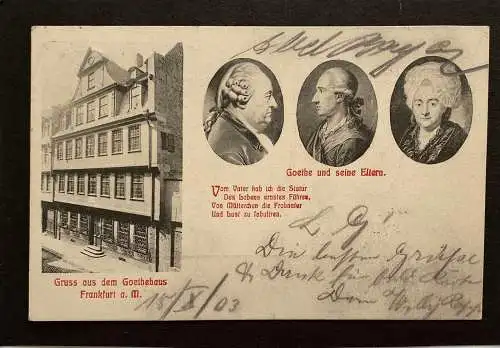 Goethe und seine Eltern.
Vom Vater hab ich die Statur
Des Lebens ernstes Führen,
Von Mütterchen die Frohnatur
Und Lust zu fabuliren.
Gruss aus dem Goethehaus
Frankfurt a. M.
15/X/03
L. G.
Die besten Grüße
& Dank für Karte
Dein Willy